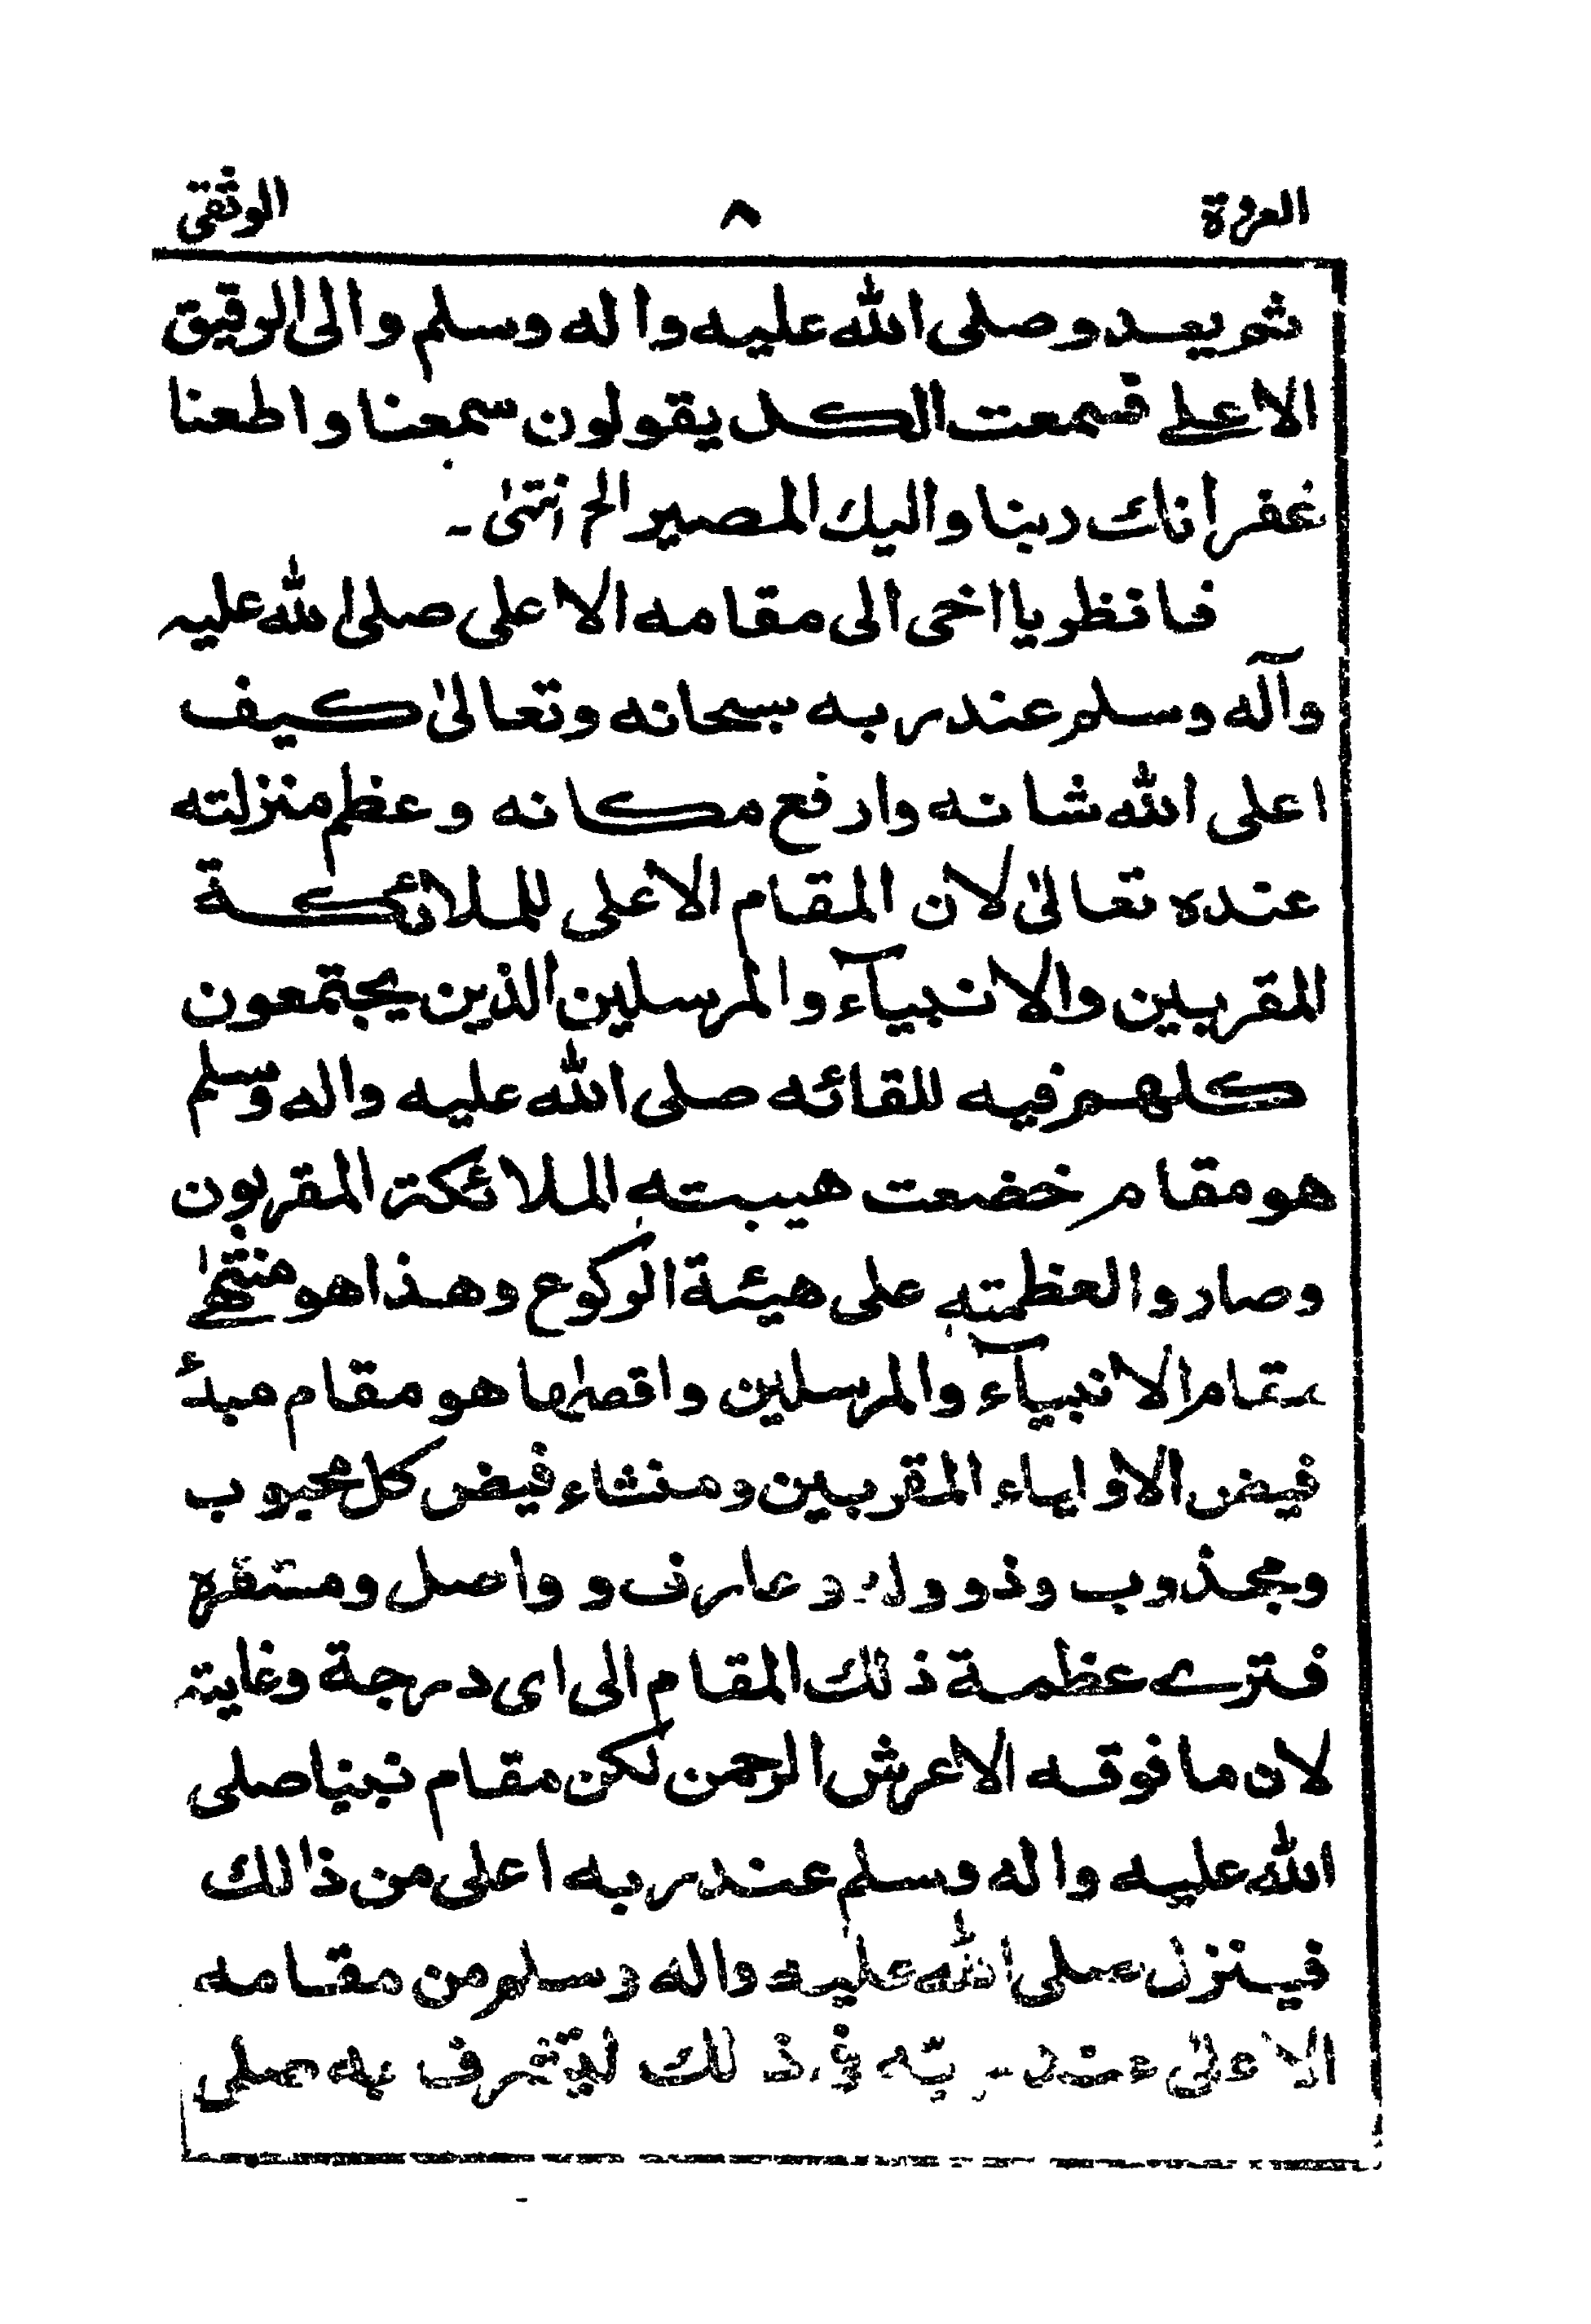 العروة ٨ الوثقى
ثم يعد وصلى الله عليه واله وسلم والى الرفيق
الاعلى فسمعت الكل يقولون سمعنا واطعنا
غفرانك ربنا واليك المصير الخ انتهىٰ ۔
فانظر يا اخى الى مقامه الاعلى صلى الله عليه
وآله وسلم عند ربه سبحانه وتعالىٰ كيف
اعلى الله شانه وارفع مكانه وعظم منزلته
عنده تعالىٰ لان المقام الاعلى للملائكة
المقربين والانبيآء والمرسلين الذين يجتمعون
كلهم فيه للقائه صلى الله عليه واله وسلم
هو مقام خضعت هيبته الملائكة المقربون
وصاروا لعظمته على هيئة الركوع وهذا هو منتهىٰ
مقام الانبيآء والمرسلين واقصاها هو مقام مبدئ
فيض الاولياء المقربين ومنشاء فيض كل محبوب
ومجذوب وذو وله وعارف و واصل ومستقره
فترے عظمة ذلك المقام الى اى درجة وغاية
لان ما فوقه الا عرش الرحمن لكن مقام نبينا صلى
الله عليه واله وسلم عند ربه اعلى من ذالك
فينزل صلى الله عليه واله وسلم من مقامه
الاعلىٰ عند ربّه فى ذلك ليتشرف به صلى